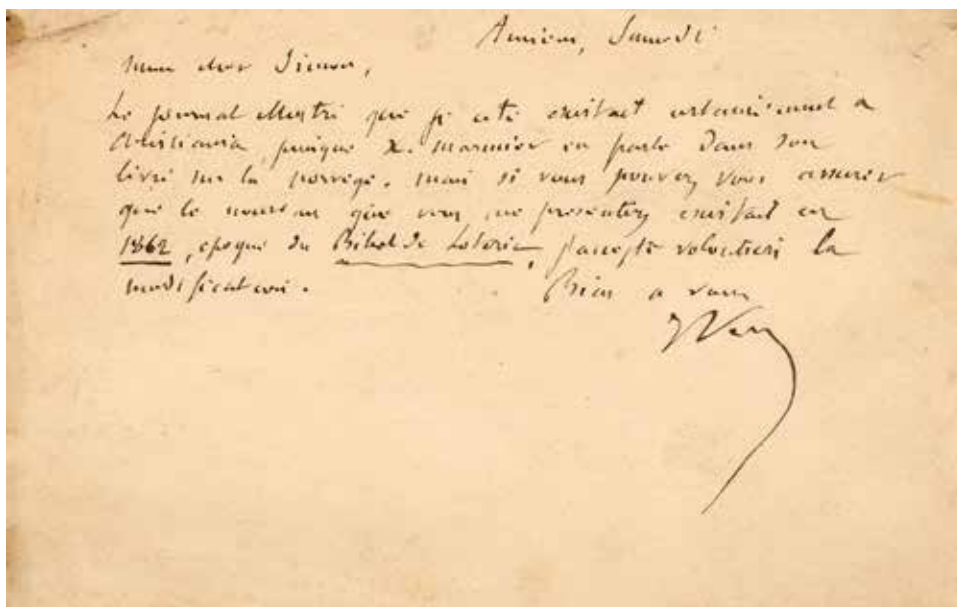 Amiens, Samedi
Mon cher Simon,
Le journal illustré que je cite existait certainement a
Christiania, puisque X. Marmier en parle dans son
livre sur la Norvège. Mais si vous pouvez vous assurer
que le nouveau que vous me présentez existait en
1862, époque du Billet de Loterie, j'accepte volontiers la
modification.
Bien a vous
JVerne